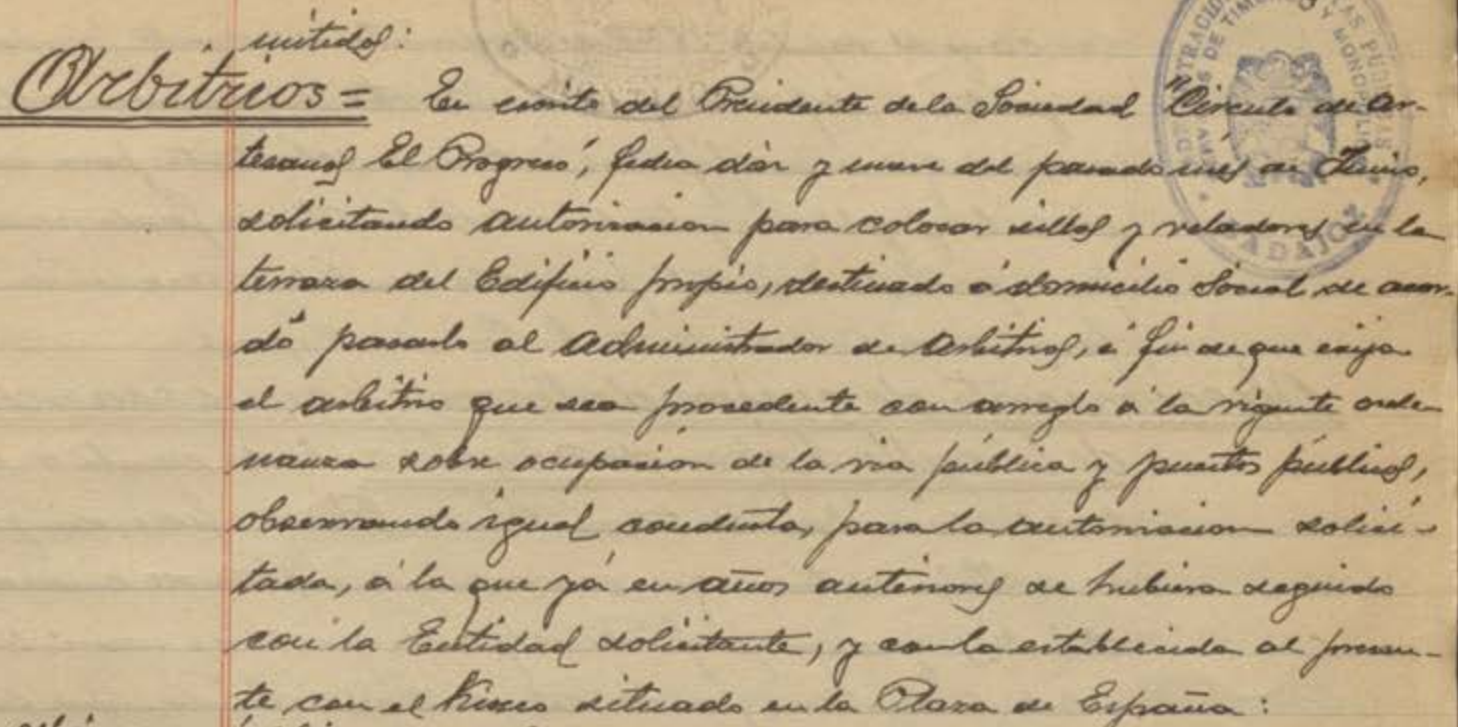 mitidos:
Arbitrios = En escrito del Presidente de la Sociedad "Circulo de Ar-
tesanos El Progreso", fecha diez y nueve del pasado mes de Junio,
solicitando autorizacion para colocar sillas y veladores en la
terraza del Edificio propio, destinado á domicilio Social, se acor-
dó pasarlo al Administrador de Arbitrios, á fin de que exija
el arbitrio que sea procedente con arreglo á la vigente orde-
nanza sobre ocupación de la via pública y puestos públicos,
observando igual conducta, para la autorizacion solici-
tada, á la que yá en años anteriores se hubiera seguido
con la Entidad solicitante, y con la establecida al presen-
te con el Kiosco situado en la Plaza de España:
BADAJOZ